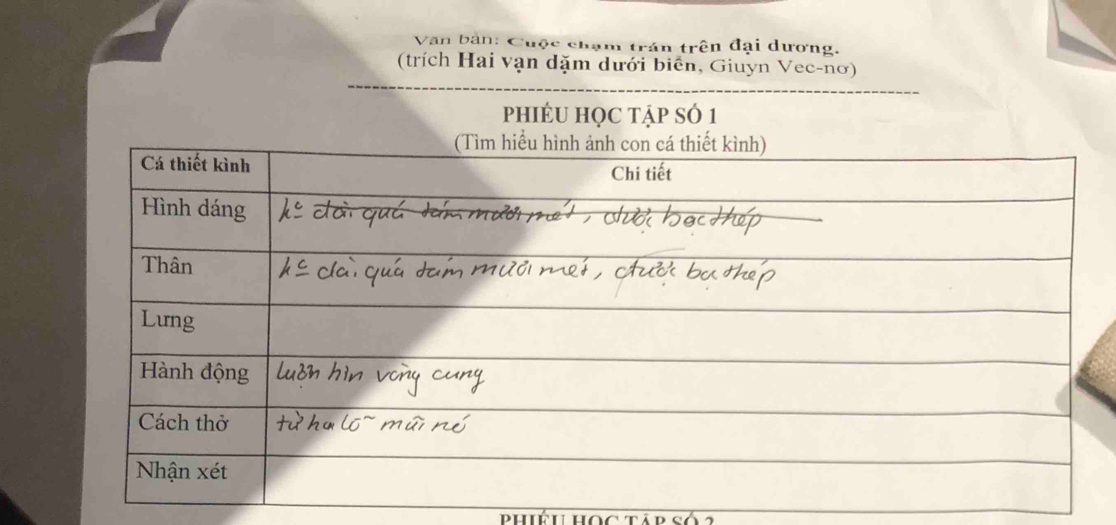 Văn bản: Cuộc chạm trán trên đại dương.
(trích Hai vạn dặm dưới biển, Giuyn Vec-nơ)
PHIẾU HỌC TẬP SỐ 1
(Tìm hiểu hình ảnh con cá thiết kình)
Cá thiết kình Chi tiết
Hình dáng dài quá tám mươi mét, được bọc thép
Thân dài quá tám mươi mét, được bọ thép
Lưng
Hành động lượn hìn vòng cung
Cách thở từ ha lỗ mũi nó
Nhận xét
PHIẾU HỌC TẬP SỐ 2